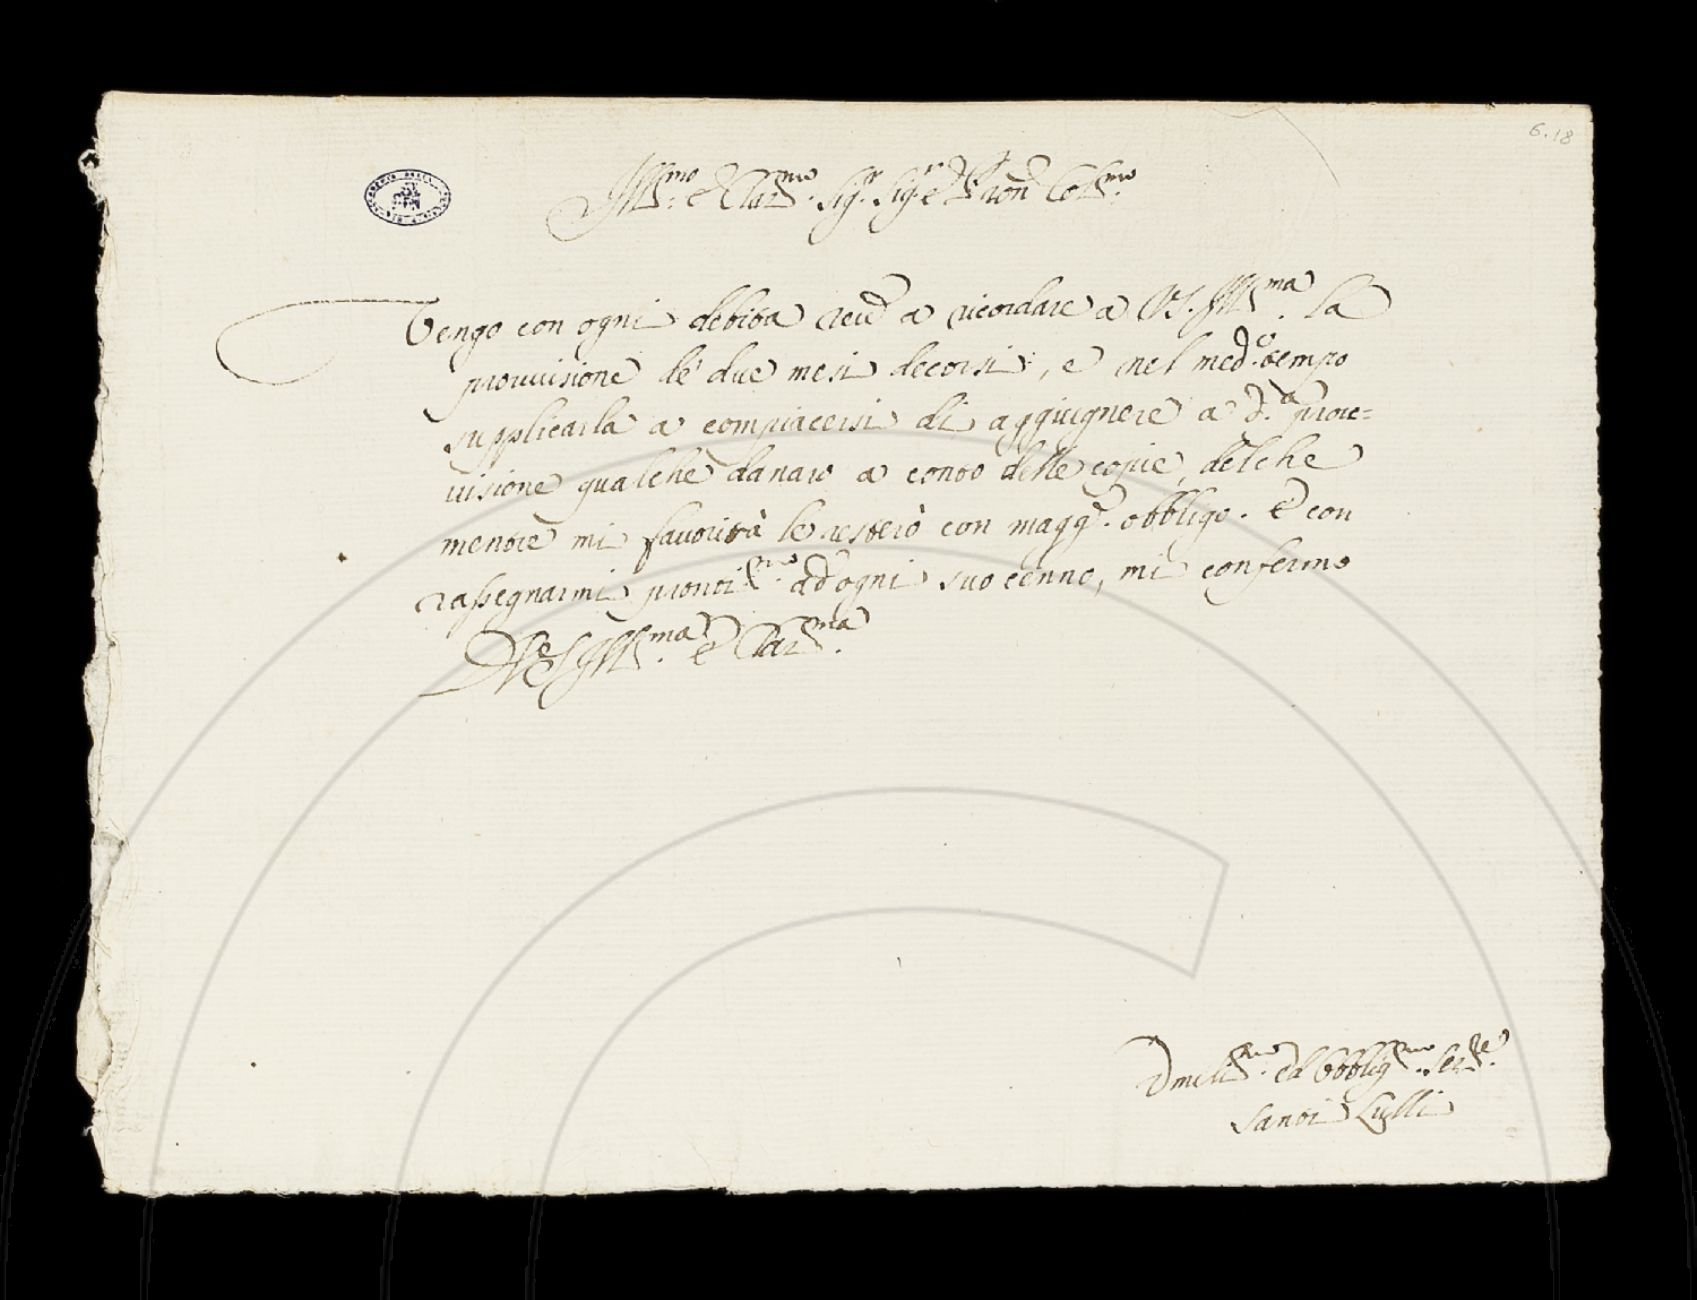 6.18
Ill.mo e Clar.mo Sig.r Sig.r e Pron Col.mo
Vengo con ogni debita reu.a a ricordare a VS. Ill.ma la
prouuisione de' due mesi decorsi, e nel med.o tempo
supplicarla a compiacersi di aggiugnere a d.a prou=
uisione qualche danaro a conto delle copie, del che
mentre mi fauorirà le resterò con magg.e obbligo. E con
rassegnarmi pronti.mo ad ogni suo cenno, mi confermo
Di VS Ill.ma e Clar.ma
Vmiliss.mo ed Obblig.mo Ser.re
Santi Lulli